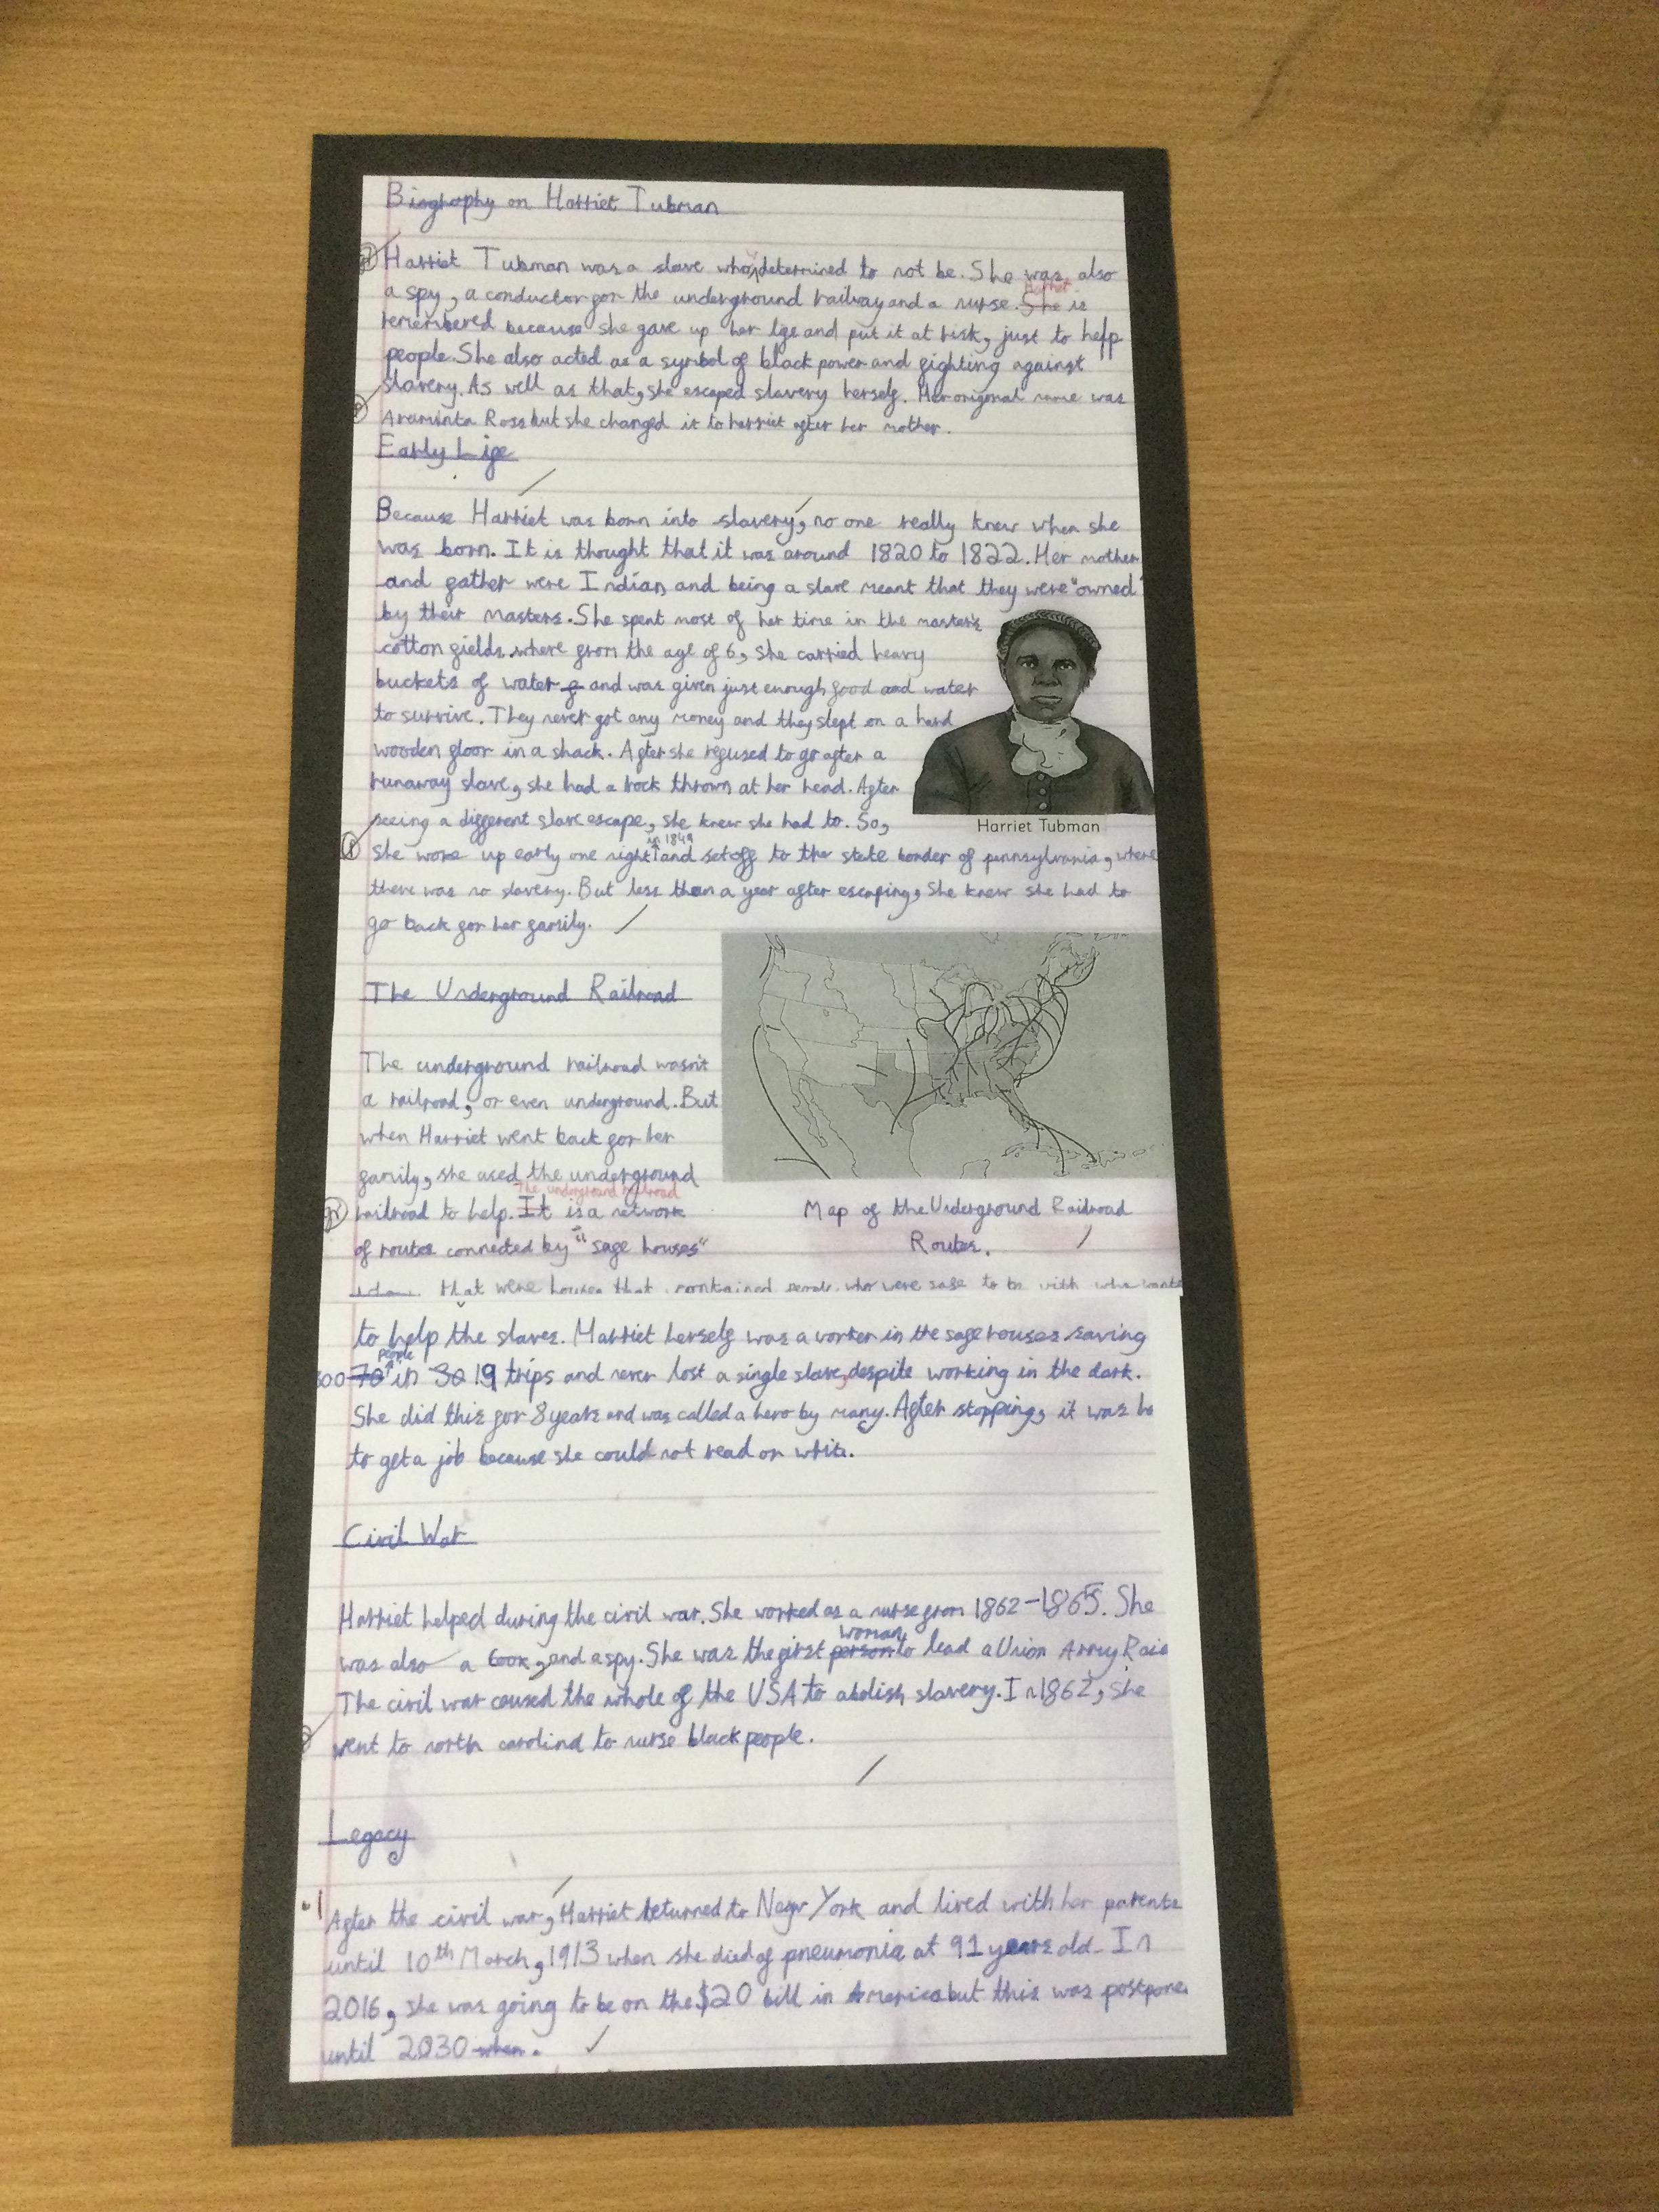 Biography on Harriet Tubman
Harriet Tubman was a slave who, determined to not be. She was also
a spy, a conductor for the underground railway and a nurse. Harriet She is
remembered because she gave up her life and put it at risk, just to help
people. She also acted as a symbol of black power and fighting against
slavery. As well as that, she escaped slavery herself. Her origonal name was
Araminta Ross but she changed it to harriet after her mother.
Early Life
Because Harriet was born into slavery, no one really knew when she
was born. It is thought that it was around 1820 to 1822. Her mother
and father were Indian and being a slave meant that they were "owned"
by their masters. She spent most of her time in the master's
cotton fields where from the age of 6, she carried heavy
buckets of water and was given just enough food and water
to survive. They never got any money and they slept on a hard
wooden floor in a shack. After she refused to go after a
runaway slave, she had a rock thrown at her head. After
seeing a different slave escape, she knew she had to. So,
Harriet Tubman
she woke up early one night in 1849 and set off to the state border of pennsylvania, where
there was no slavery. But less than a year after escaping, she knew she had to
go back for her family.
The Underground Railroad
The underground railroad wasn't
a railroad, or even underground. But
when Harriet went back for her
family, she used the underground
The underground railroad
railroad to help. It is a network
of routes connected by "safe houses"
Map of the Underground Railroad
Routes.
that were houses that contained people who were safe to be with who wante
to help the slaves. Harriet herself was a worker in the safe houses saving
300 70 people in 30 19 trips and never lost a single slave, despite working in the dark.
She did this for 8 years and was called a hero by many. After stopping, it was ha
to get a job because she could not read or write.
Civil War
Harriet helped during the civil war. She worked as a nurse from 1862-1865. She
was also a cook, and a spy. She was the first person woman to lead a Union Army Raid
The civil war caused the whole of the USA to abolish slavery. In 1862, she
went to north carolina to nurse black people.
Legacy
After the civil war, Harriet returned to New York and lived with her parents
until 10th March, 1913 when she died of pneumonia at 91 years old. In
2016, she was going to be on the $20 bill in America but this was postpone
until 2030 when.